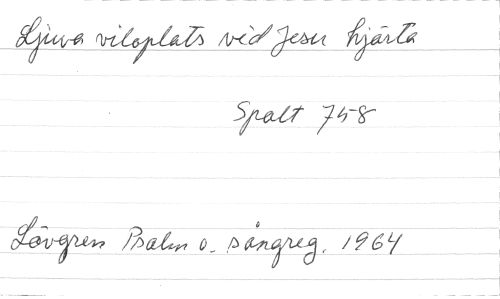 Ljuva viloplats vid Jesu hjärta
Spalt 758
Lövgren Psalm o. sångreg. 1964